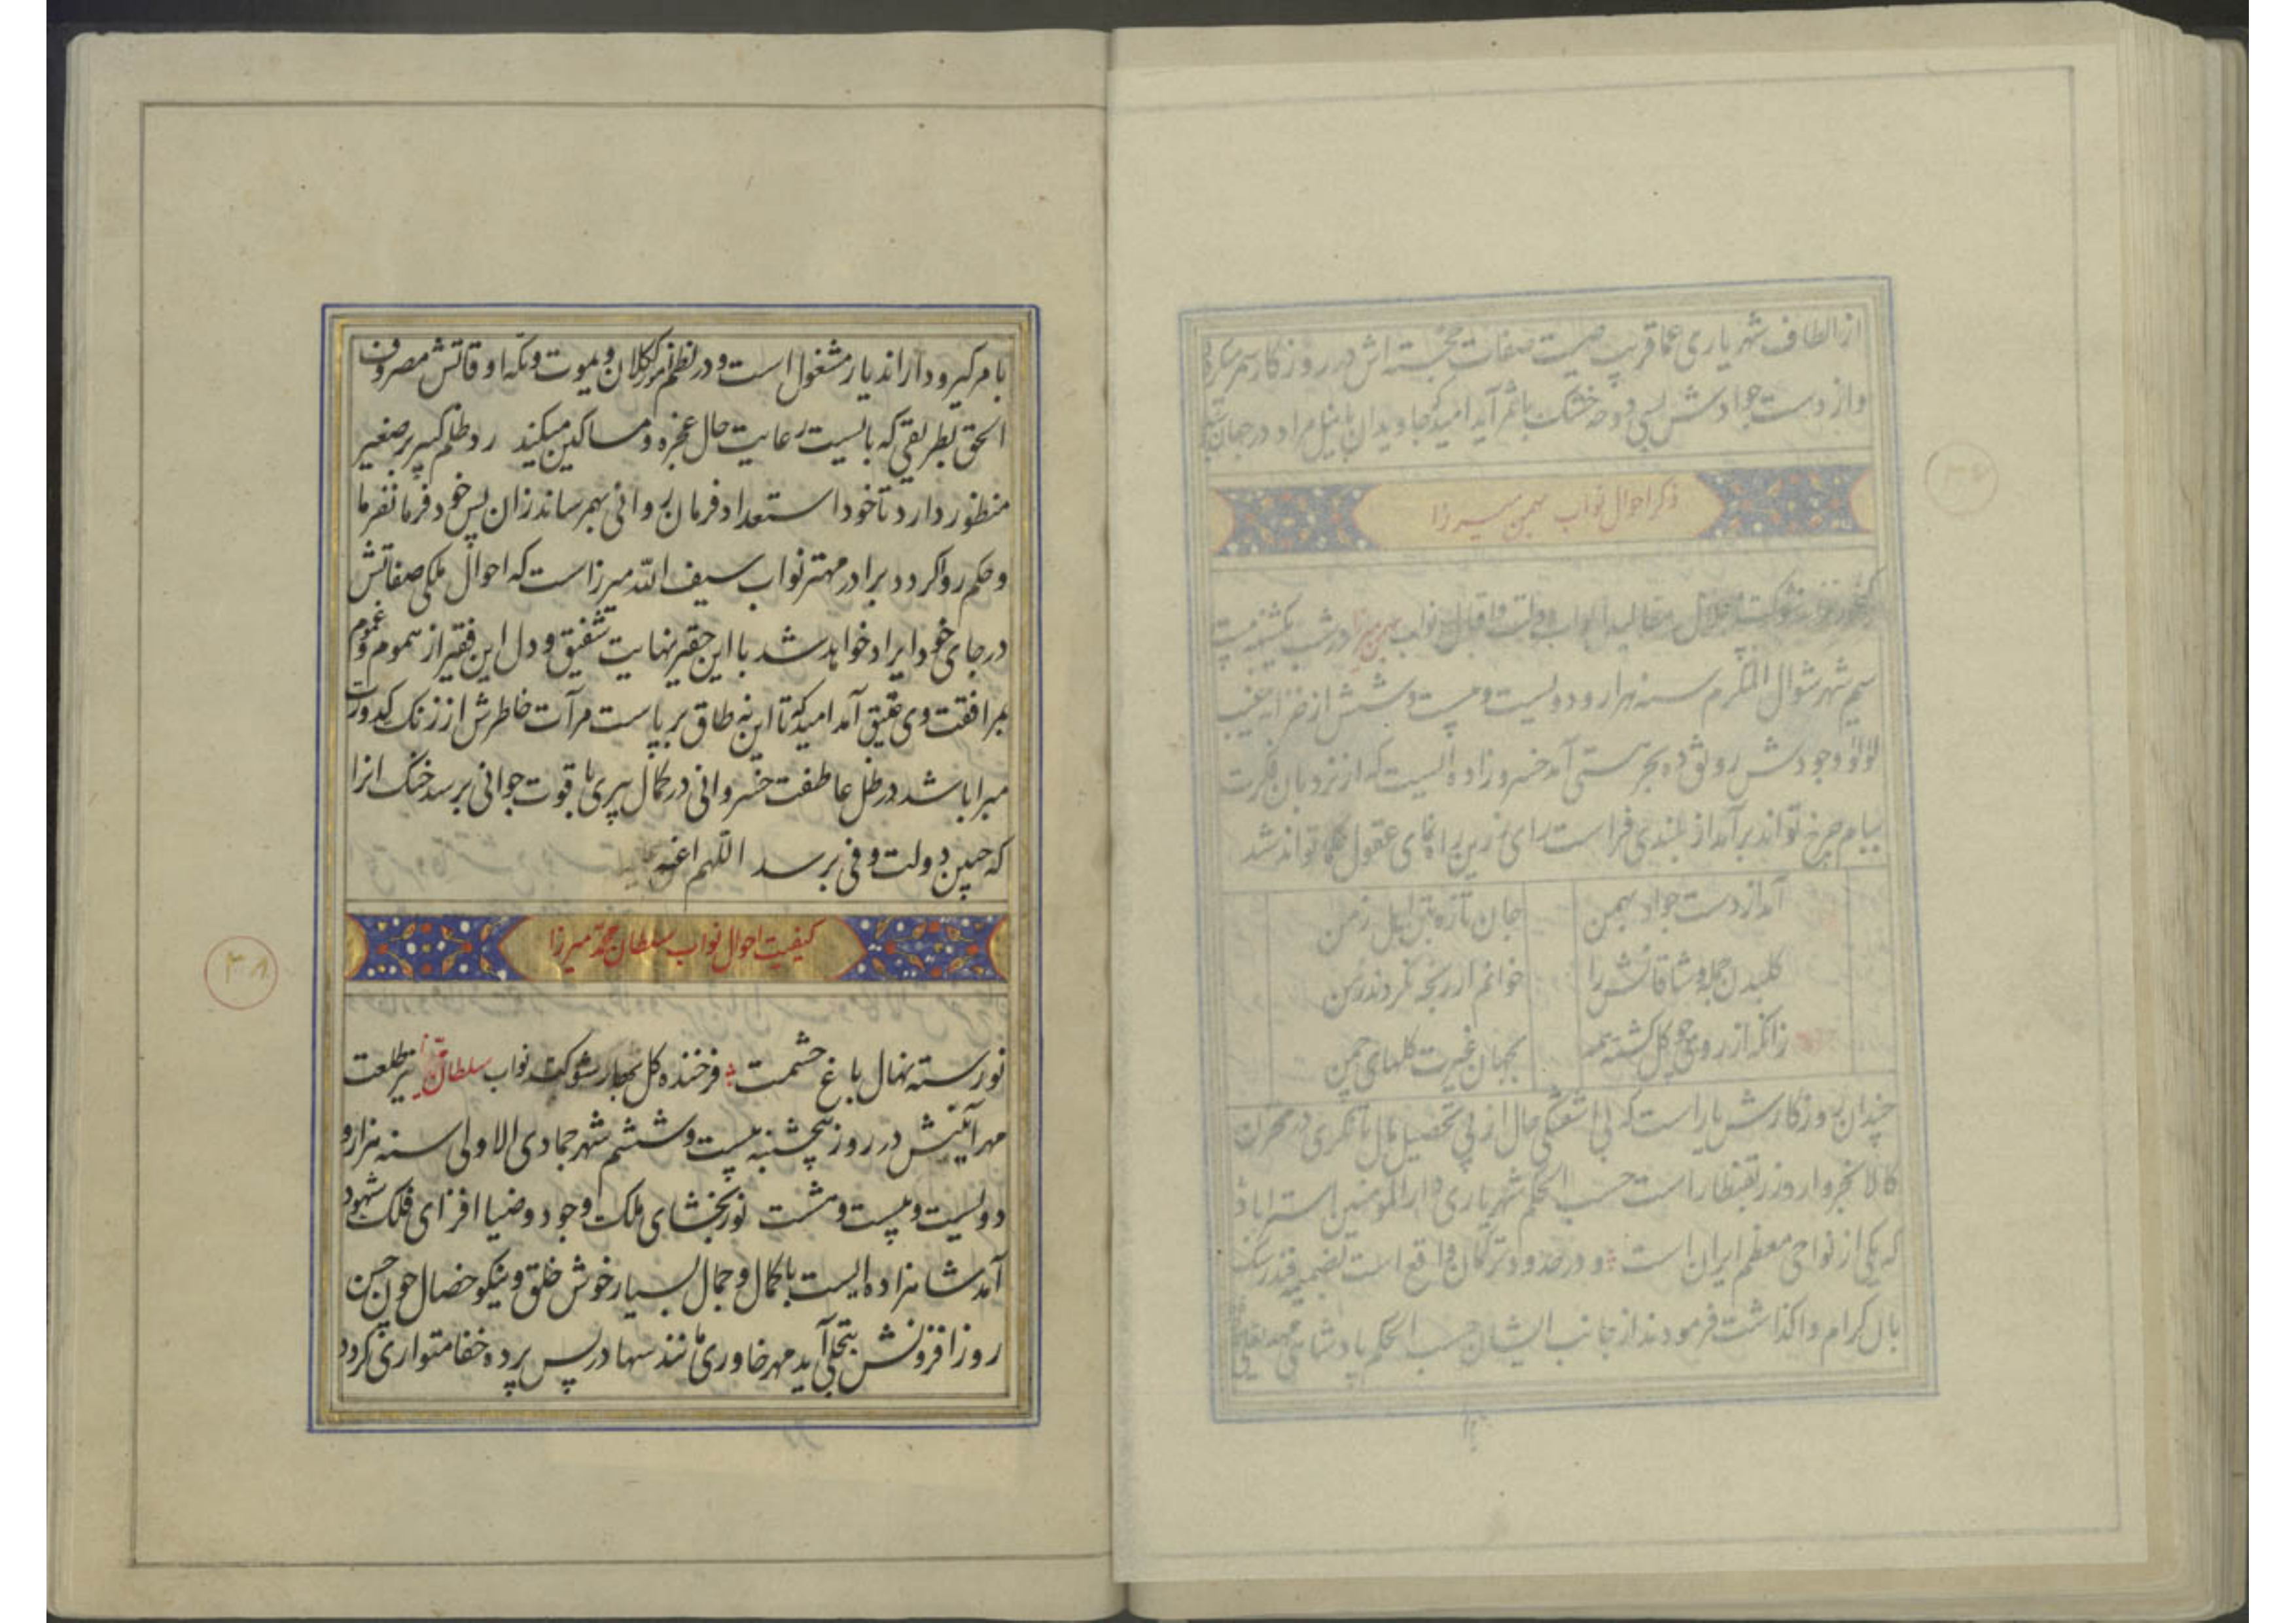 از الطاف شهریاری عماقریب صیت صفات خجسته اش در روزگار سمر
واز دست جوادش بسی دوحه خشک با ثمر آید امید که جاویدان با نیل مراد در جهان
ذکر احوال نواب بهمن میرزا
شوکت و جلال مقالید ابواب دولت و اقبال نواب بهمن میرزا در شب یکشنبه بیست
سیم شهر شوال المکرم سنه هزار و دویست و بیست و شش از خزانه غیب
لؤلؤ وجودش رونق ده بحر هستی آمد خسرو زاده ایست که از نردبان فکرت
ببام چرخ تواند برآمد از بلندی فراست رای زرین راهنمای عقول تواند شد
آمد از دست جواد بهمن
جان تازه بتن اهل زمن
گلبدن جمله وشاقانش را
خوانم ار رنجه نگردند ز من
زانکه از روی چو گل گشته همه
بجهان غیرت گلهای چمن
چندان روزگارش یار است که بی آشفتگی حال از پی تحصیل مال با تکری در مخزن
کالا بخروار و زر بقنطار است حسب الحکم شهریاری دار المومنین استراباد
که یکی از نواحی معظم ایران است و در حدود ترکمان واقع است بضمیمه فندرسک
بآل کرام واگذاشت فرمودند از جانب ایشان حسب الحکم پادشاهی
۳۷
بامر گیر و دار اندیار مشغول است و در نظم امور کوکلان و یموت و تکه اوقاتش مصروف
الحق بطریقی که بایست رعایت حال عجزه و مساکین میکند رد ظلم کبیر بر صغیر
منظور دارد تا خود استعداد فرمان روائی بهم رساند زان پس خود فرمانفرما
و حکم روا گردد برادر مهتر نواب سیف الله میرزا است که احوال ملکی صفاتش
در جای خود ایراد خواهد شد با این حقیر نهایت شفیق و دل این فقیر از هموم و غموم
بمرافقت وی عتیق آمد امید که تا این نه طاق بر پاست مرآت خاطرش از زنک کدورت
مبرا باشد در ظل عاطفت خسروانی در کمال پیری با قوت جوانی برسد خنک انرا
که چنین دولت وفی برسد اللهم
کیفیت احوال نواب سلطان محمد میرزا
نو رسته نهال باغ حشمت فرخنده کل بهار شوکت نواب سلطان محمد میرزا نیر طلعت
مهر آئینش در روز پنجشنبه بیست و ششم شهر جمادی الاولی سنه هزار و
دویست و بیست و هشت نور بخشای ملک وجود و ضیا افزای فلک شهود
آمد شاهزاده ایست با کمال و جمال بسیار خوش خلق و نیکو خصال چون حسن
روز افزونش بتجلی آید مهر خاوری مانند سها در پس پرده خفا متواری گردد
۳۸